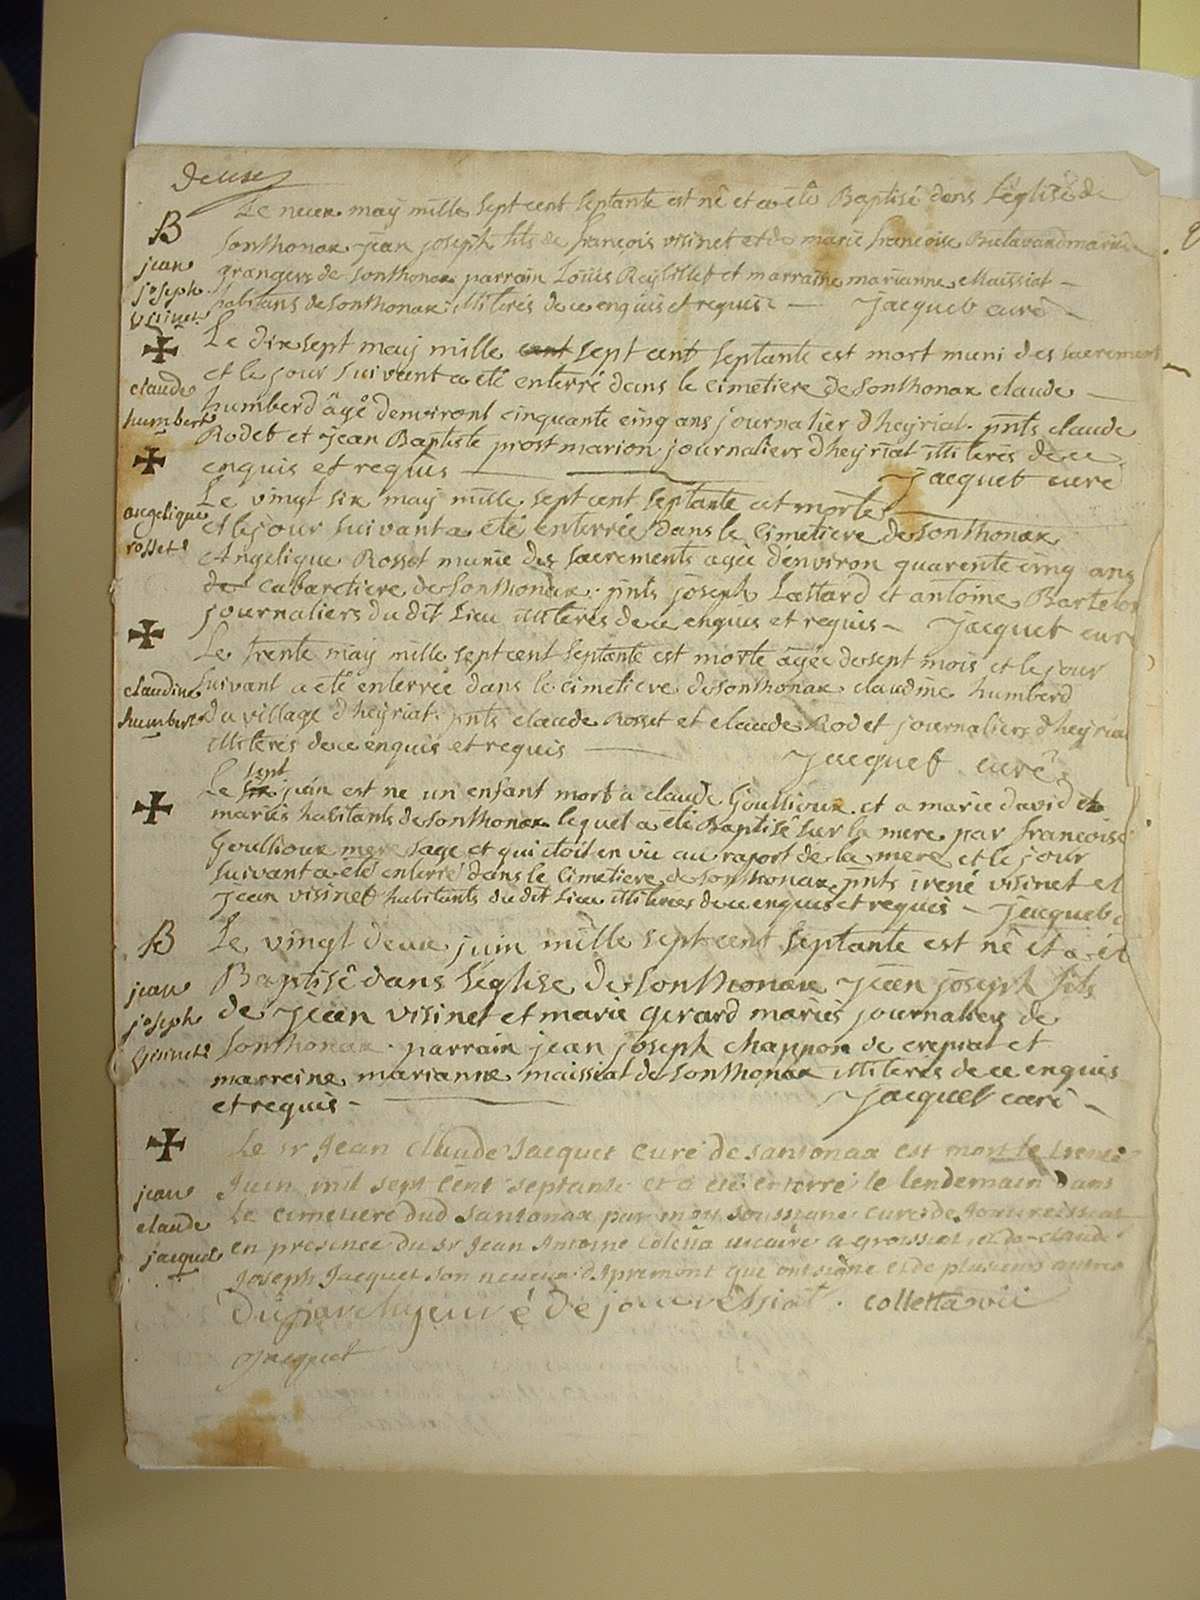 Deuse
B
jean
joseph
visinet
Le neux may mille sept cent septante est né et a été Baptisé dans L'église de
Sonthonax jean joseph fils de françois visinet et de marie francoise mariés
grangers de Sonthonax parrain Louis Reybillet et marraine marianne Maissiat
habitans de Sonthonax illiterés de ce enquis et requis — Jacquet curé
claude
humbert
Le dix sept may mille cent sept cent septante est mort muni des sacrements
et le jour suivant a été enterré dans le Cimetiere de Sonthonax claude —
humberd âgé denviront cinquante cinq ans journalier d'heyriat. pnts claude
Rodet et Jean Baptiste prost marion journaliers d'heyriat illiterés de ce
enquis et requis — Jacquet curé
angelique
rosset
Le vingt six may mille sept cent septante est morte
et le jour suivant a été enterrée dans le Cimetiere de Sonthonax
Angelique Rosset munie des sacrements agée d'environ quarente cinq ans
de cabaretiere de Sonthonax. pnts joseph Lattard et antoine
journaliers du dit Lieu illiterés de ce enquis et requis — Jacquet curé
claudine
humbert
Le trente may mille sept cent septante est morte agée de sept mois et le jour
suivant a été enterrée dans le Cimetiere de Sonthonax claudine humberd
du village d'heyriat. pnts claude Rosset et claude Rodet journaliers d'heyriat
illiterés de ce enquis et requis — Jacquet curé
sept
Le six juin est ne un enfant mort a claude Goullioux et a marie david
mariés habitants de Sonthonax lequel a été Baptisé sur la mere par francoise
Goullioux mere sage et qui etoit en vie au raport de la mere et le jour
suivant a été enterré dans le Cimetiere de Sonthonax pnts irené visinet et
Jean visinet habitants du dit Lieu illiteres de ce enquis et requis — Jacquet c
B
jean
joseph
visinet
Le vingt deux juin mille sept cent septante est né et a été
Baptisé dans Leglise de Sonthonax Jean joseph fils
de Jean visinet et marie gerard mariés journaliers de
Sonthonax. parrain jean joseph chappon de crepiat et
marreine marianne maissiat de Sonthonax illiterés de ce enquis
et requis — Jacquet curé —
jean
claude
jacquet
Le sr Jean Claude Jacquet curé de Santonax est mort le trente
Juin mil sept cent septante et a été enterré le lendemain Dans
Le cimetiere dud Santonax par moy soussigné curé de Jouvreissiat
en presence du sr Jean Antoine Coletta vicaire a groissiat, et de claude
Joseph Jacquet son neveux d'apremont que ont signé et de plusieurs autres
curé De jouvressiat. colletta vic
Jacquet